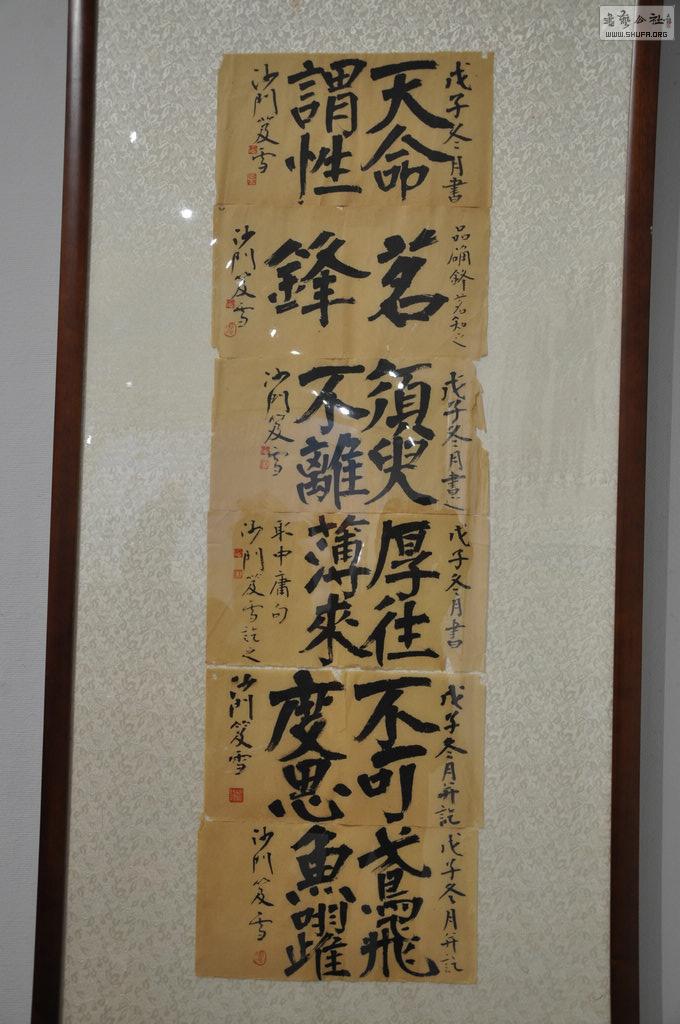 戊子冬月書
天命
謂性
沙門笈雪
品碻鋒茗知之
茗
鋒
沙門笈雪
戊子冬月書之
須臾
不離
沙門笈雪
戊子冬月書
厚往
薄來
取中庸句
沙門笈雪記之
戊子冬月并記
不可
度思
沙門笈雪
戊子冬月并記
鳶飛
魚躍
沙門笈雪
书艺公社
WWW.SHUFA.ORG